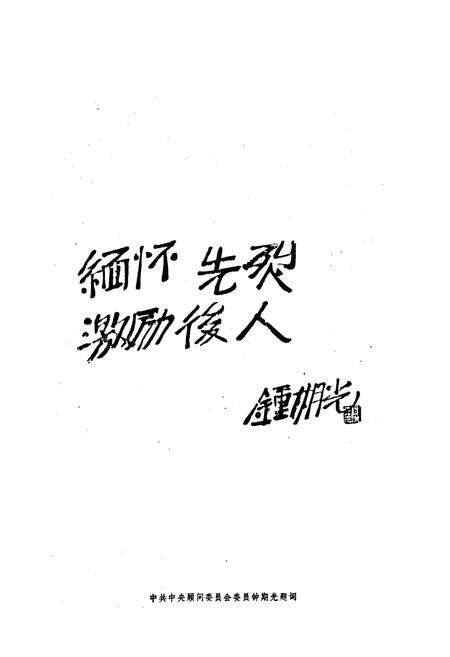 緬怀先烈
激励後人
鍾期光
中共中央顾问委员会委员钟期光题词